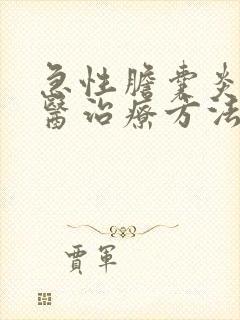 急性膽囊炎
醫治療方法
賈軍